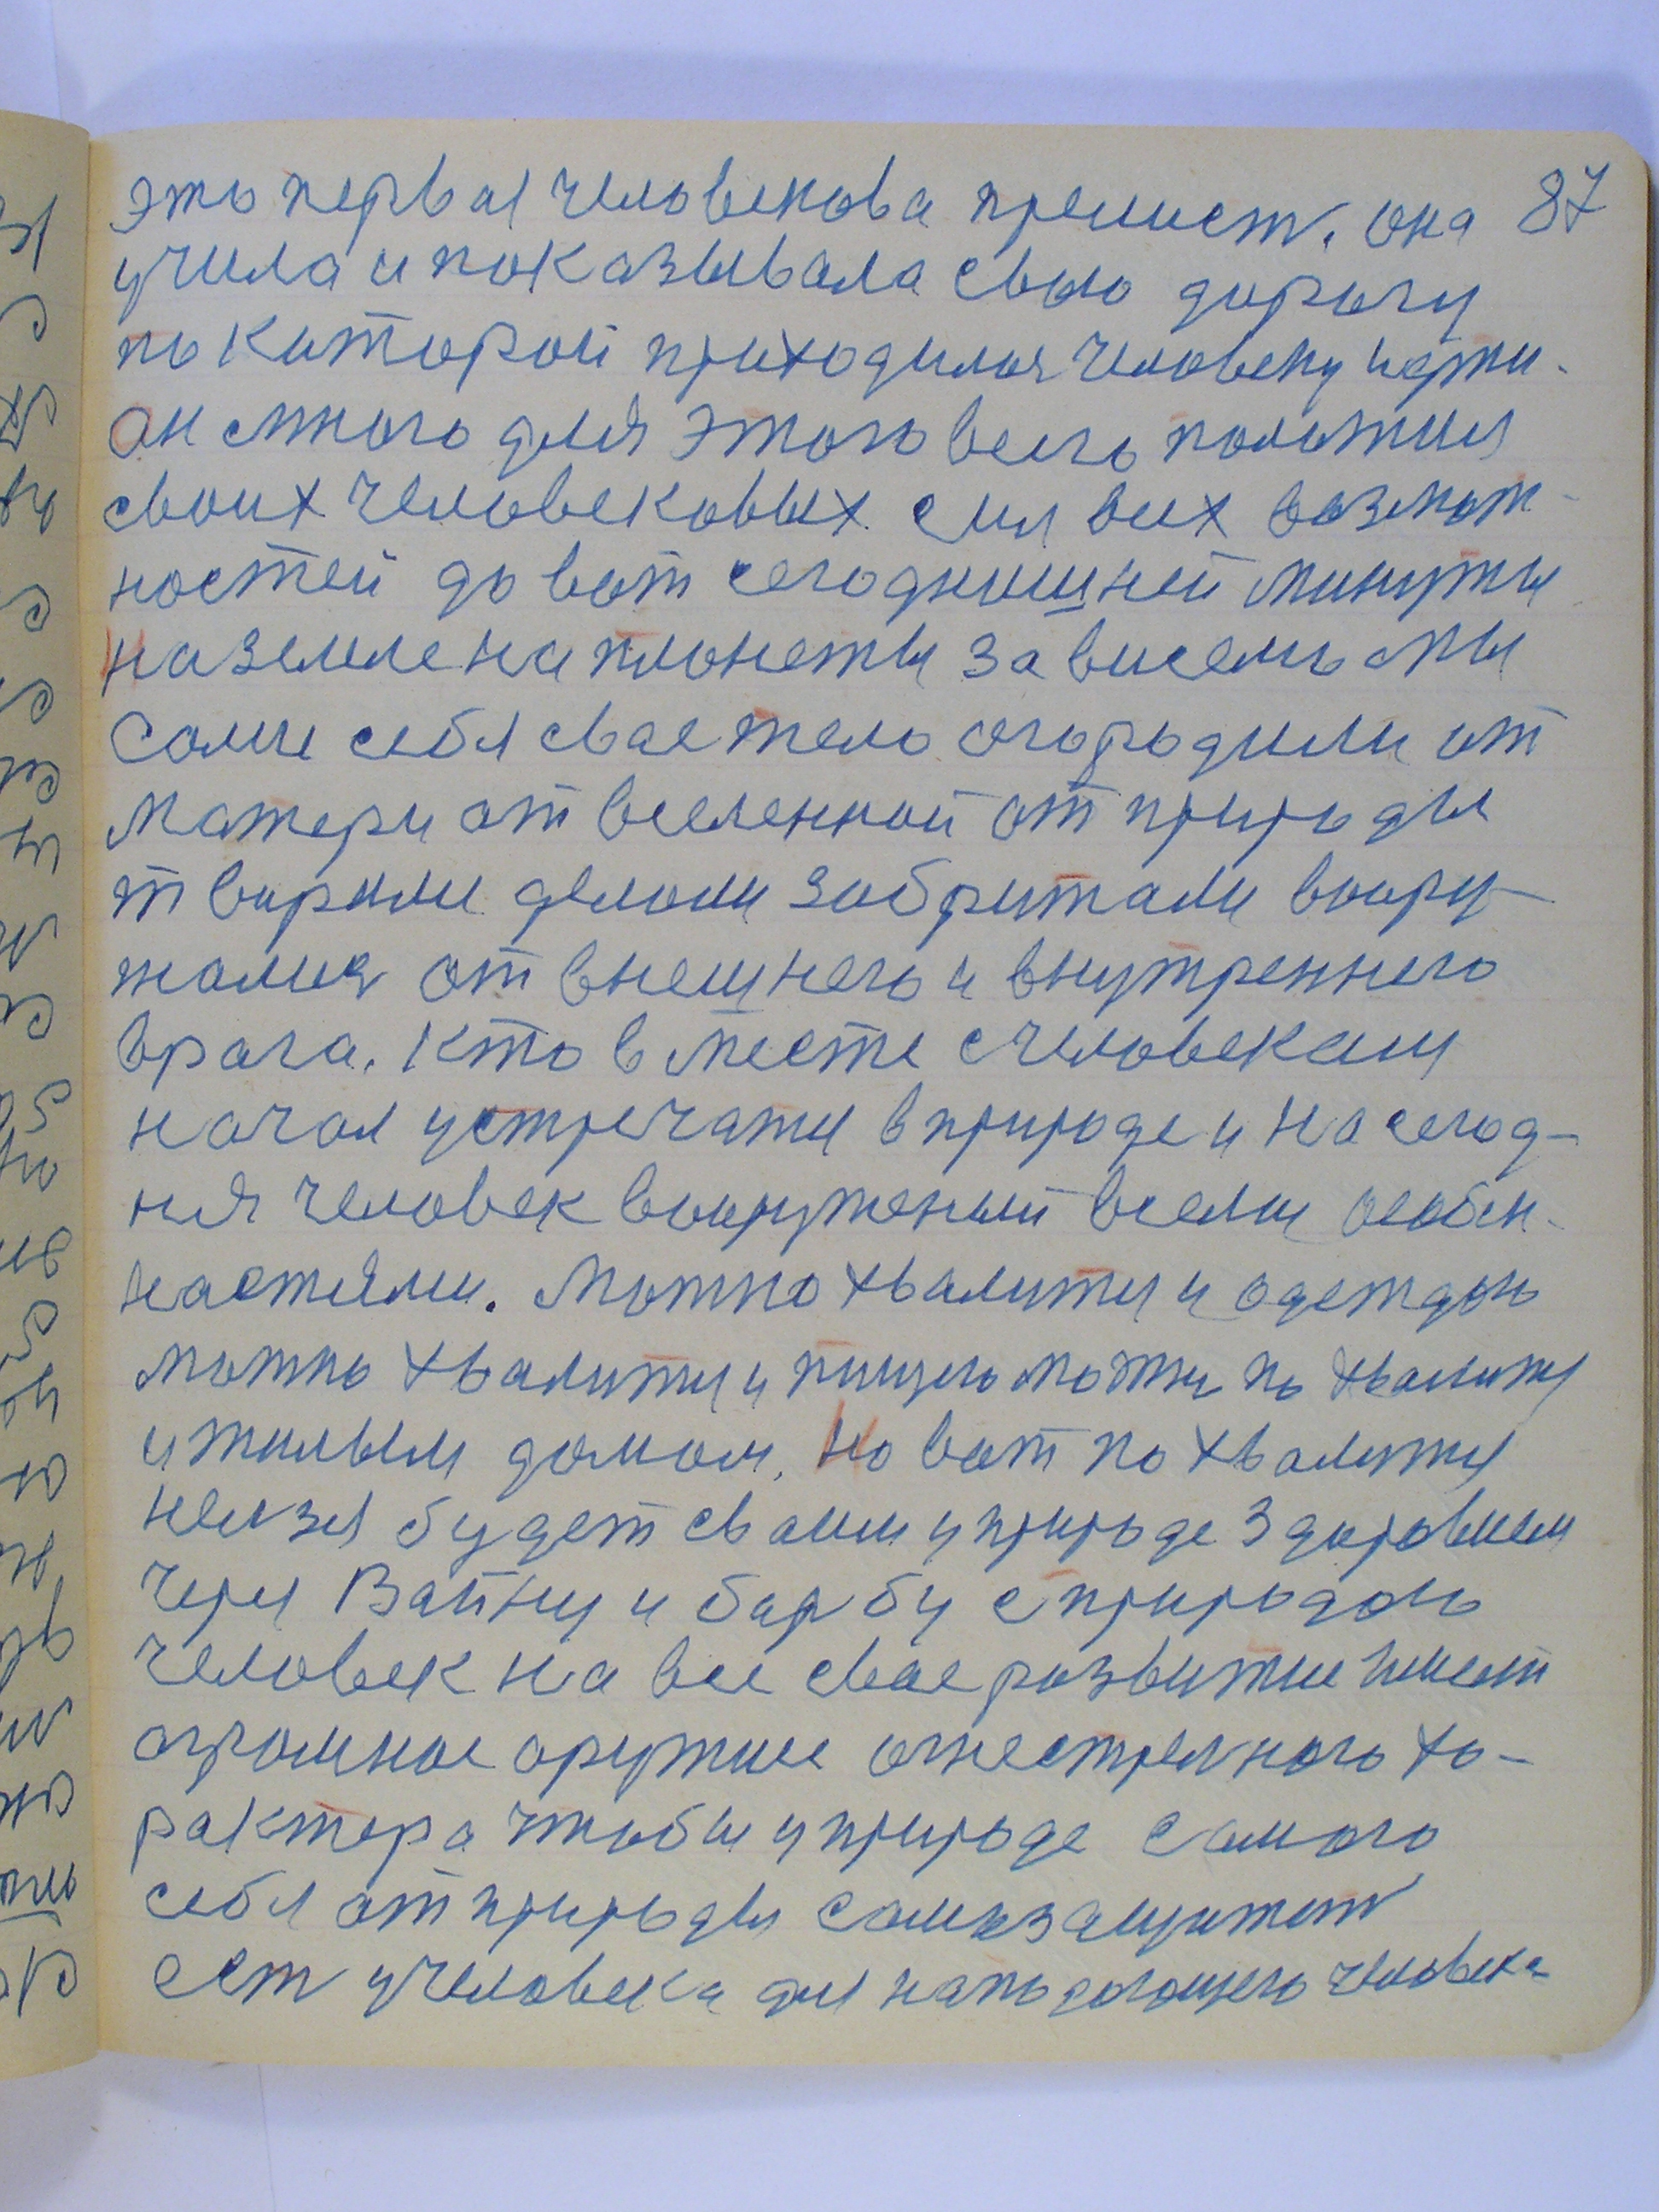 это первая человекова прелист. она 87
учила и показывала свою дорогу
по которой приходился человеку идти.
он много для этого всего положил
своих человековых сил всих возмож-
ностей до вот сегоднишней минуты
на земле на плонеты зависемо мы
сами себя свае тело огородили от
матери от вселенной от природы
творили делали забритали воору-
жалися от внешнего и внутреннего
врага. кто вместе счеловекам
начал устречаты в природе и на сегод-
ня человек вооруженый всеми особен-
ностями. можно хвалиты и одеждою
можно хвалиты и пищею можно по хвалиты
и жилым домом. Но вот по хвалиты
нелзя будет сваим у природе здоровием
через Вайну и барбу с природою
человек на все свае розвитие имеет
огромное оружие огнестрелного ха-
рактера чтобы у природе самого
себя от природы самозащитет
ест у человека для нападающего человека